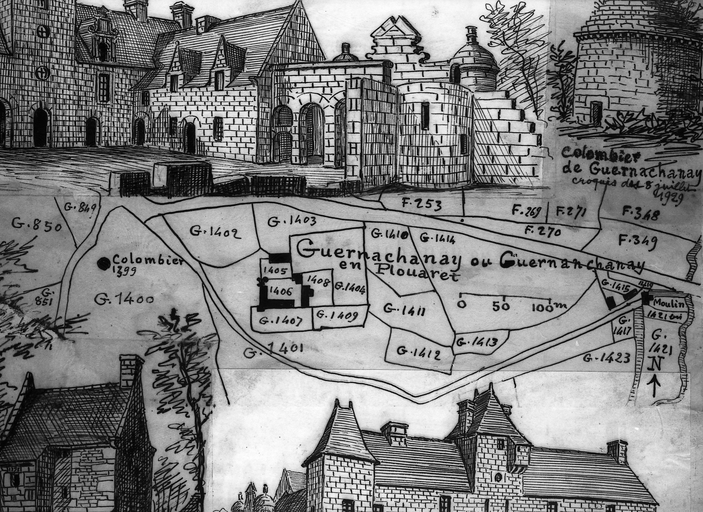 Colombier
de Guernachanay
croquis des 8 juillet
1929
F.253
F.269
F.271
F.270
F.348
F.349
G.849
G.850
G.851
G.1402
G.1403
G.1410
G.1414
Guernachanay ou Guernanchanay
en Plouaret
Colombier
1399
G.1400
1405
1406
1408
G.1404
G.1407
G.1409
G.1401
G.1411
G.1412
G.1413
0 50 100m
G.1415
Moulin
1421 bis
G.
1417
G.
1421
G.1423
N